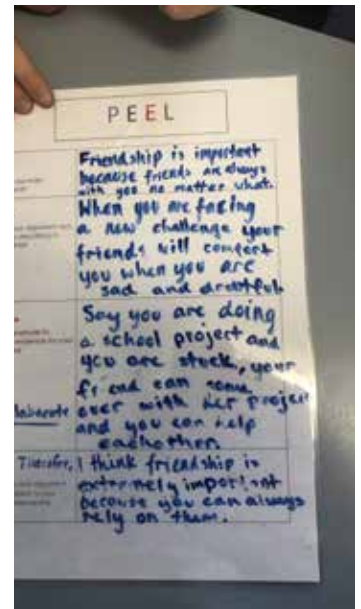 PEEL
Friendship is important
because friends are always
with you no matter what.
When you are facing
a new challenge your
friends will comfort
you when you are
sad and doubtful
Say you are doing
a school project and
you are stuck, your
friend can come
over with her project
and you can help
eachother.
laborate
Therefore, I think friendship is
extremely important
because you can always
rely on them.